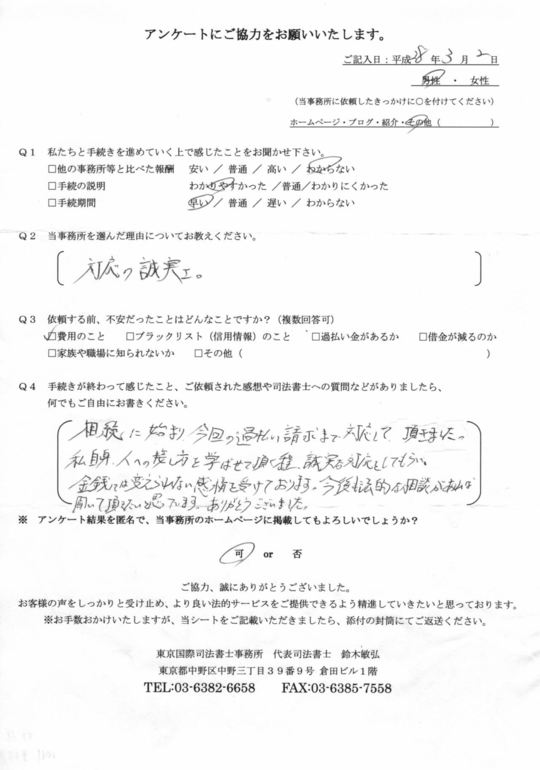 アンケートにご協力をお願いいたします。
ご記入日：平成28年3月2日
男性 ・ 女性
（当事務所に依頼したきっかけに○を付けてください）
ホームページ・ブログ・紹介・その他（　　　　）
Q1 私たちと手続きを進めていく上で感じたことをお聞かせ下さい。
□他の事務所等と比べた報酬 安い ／ 普通 ／ 高い ／ わからない
□手続の説明 わかりやすかった ／普通／わかりにくかった
□手続期間 早い ／ 普通 ／ 遅い ／ わからない
Q2 当事務所を選んだ理由についてお教えください。
対応の誠実さ。
Q3 依頼する前、不安だったことはどんなことですか？（複数回答可）
☑費用のこと □ブラックリスト（信用情報）のこと □過払い金があるか □借金が減るのか
□家族や職場に知られないか □その他（　　　　）
Q4 手続きが終わって感じたこと、ご依頼された感想や司法書士への質問などがありましたら、
何でもご自由にお書きください。
相続に始まり 今回の過払い請求まで対応して 頂きました。
私自身、人への接し方を学ばせて頂く程、誠実な対応をしてもらい、
金銭では変えられない感情を受けております。今後も法的な相談があれば
聞いて頂きたいと思っています。ありがとうございました。
※ アンケート結果を匿名で、当事務所のホームページに掲載してもよろしいでしょうか？
可 or 否
ご協力、誠にありがとうございました。
お客様の声をしっかりと受け止め、より良い法的サービスをご提供できるよう精進していきたいと思っております。
※お手数おかけいたしますが、当シートをご記載いただきましたら、添付の封筒にてご返送ください。
東京国際司法書士事務所 代表司法書士 鈴木敏弘
東京都中野区中野三丁目３９番９号 倉田ビル１階
TEL:03-6382-6658 FAX:03-6385-7558